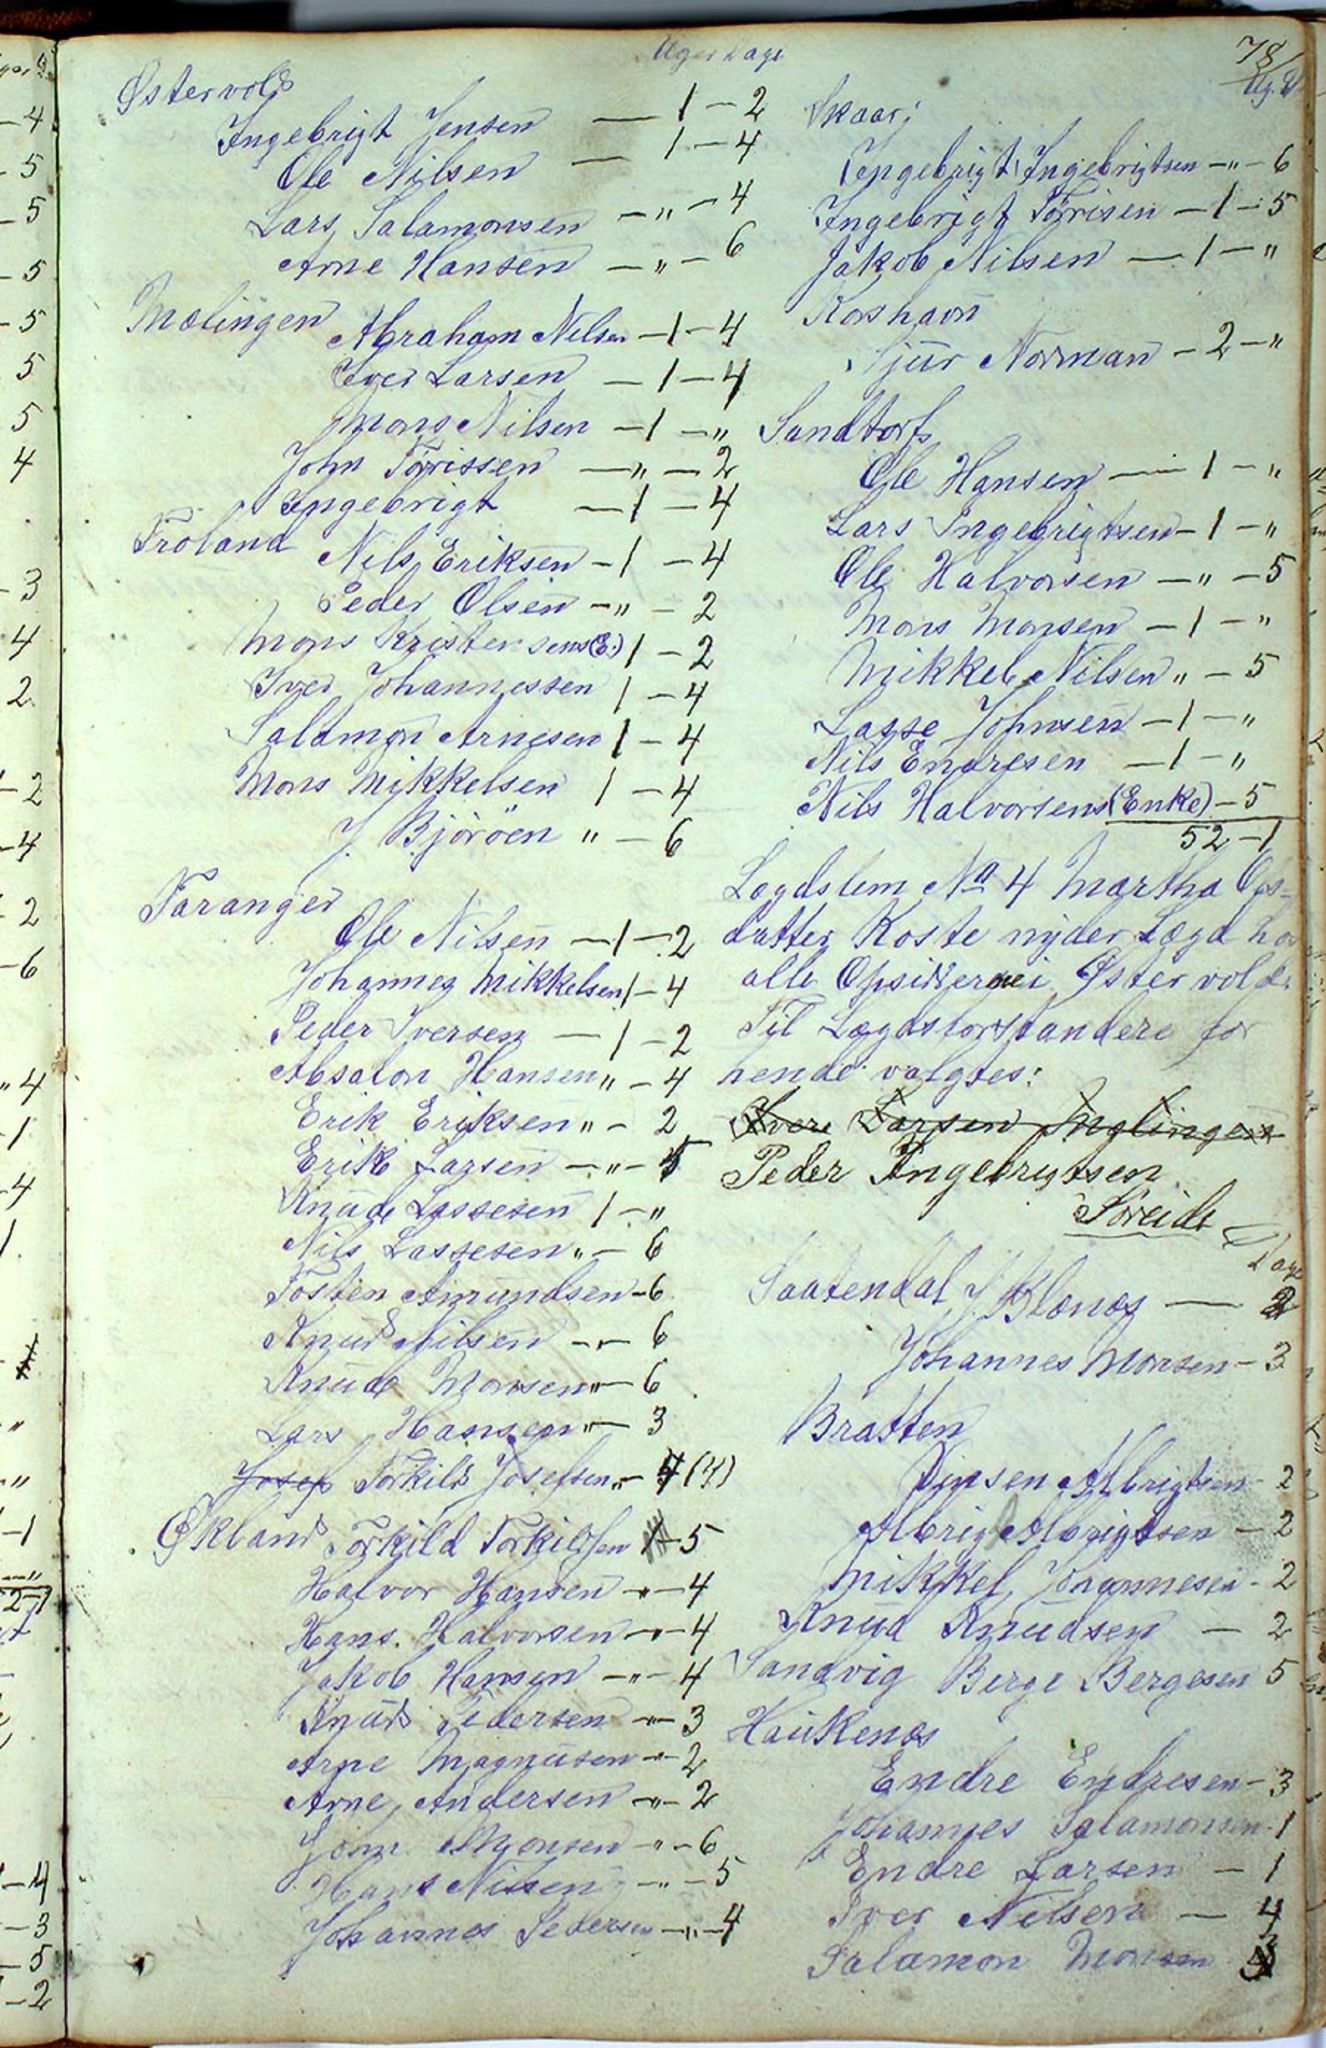 Uger Dage
78
Ug. D
Østervold
Ingebrigt Jensen — 1 — 2
Ole Nilsen — 1 — 4
Lars Salamonsen — " — 4
Arne Hansen — " — 6
Mælingen
Abraham Nilsen — 1 — 4
Iver Larsen — 1 — 4
Mons Nilsen — 1 — "
John Tørrissen — " — 2
Ingebrigt — 1 — 4
Troland
Nils Eriksen — 1 — 4
Peder Olsen — " — 2
Mons Kristensens (E.) 1 — 2
Iver Johannessen 1 — 4
Salamon Arnesen 1 — 4
Mons Mikkelsen 1 — 4
J. Björöen " — 6
Faranger
Ole Nilsen — 1 — 2
Johannes Mikkelsen 1 — 4
Peder Iversen — 1 — 2
Absalon Hansen " — 4
Erik Eriksen " — 2
Erik Larsen — " — 5
Knud Lassesen 1 — "
Nils Lassesen " — 6
Tosten Amundsen — 6
Knud Nilsen — " — 6
Knud Monsen " — 6
Lars Hansen " — 3
Josef Torkild Josefsen " — 4 (4)
Økland Torkild Torkildsen — 5
Halvor Hansen — " — 4
Hans Halvorsen — " — 4
Jakob Hansen — " — 4
Knud Pedersen — " — 3
Arne Magnusen — " — 2
Arne Andersen — " — 2
John Monsen — " — 6
Hans Nilsen — " — 5
Johannes Pedersen — " — 4
Skaar:
Ingebrigt Ingebrigtsen — " — 6
Ingebrigt Tørrisen — 1 — 5
Jakob Nilsen — 1 — "
Korshavn
Sjur Norman — 2 — "
Sandtorf
Ole Hansen — 1 — "
Lars Ingebrigtsen — 1 — "
Ole Halvorsen — " — 5
Mons Monsen — 1 — "
Mikkel Nilsen " — 5
Lasse Johnsen — 1 — "
Nils Endresen — 1 — "
Nils Halvorsens (Enke) — 5
52 — 1
Lægdslem No 4 Martha Ols-
datter Koste nyder Lægd hos
alle Opsiderne i Østervold.
Til Lægdsforstandere for
hende valgtes:
Iver Larsen Mælingen
Peder Ingebrigtsen
Søreide
Dage
Saatendal J. Klenes — 2
Johannes Monsen — 3
Bratten
Albrigtsen — 2
Albrigt Albrigtsen — 2
Mikkel Johannesen — 2
Knud Knudsen — 2
Sandvig Berge Bergesen 5
Haukenæs
Endre Endresen — 3
Johannes Salamonsen — 1
Endre Larsen — 1
Iver Nilsen — 4
Salamon Monsen 3